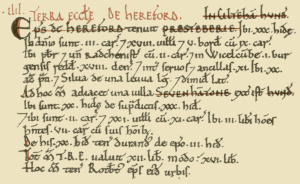 TERRA ECCLE DE HEREFORD. In Cutestorn hund.
Eps de HEREFORD tenuit PRESTEBERIE. Ibi .xxx. hidę.
In dnio sunt .iii. car. 7 xviii. uilli 7 v. bord cu .ix. car.
Ibi pbr 7 un Radchenist cu .ii. car. 7 in Wicelcube .i. burgensis
redd xviii. den. Int seruos 7 ancillas .xi. Ibi .xx.
ac pti. Silua de una leuua lg 7 dimid lat.
Ad hoc m adiacet una uilla SEVENHATONE ext ist hund.
Ibi sunt .xx. hidę de supdictis .xxx. hid.
7 ibi sunt .ii. car. 7 xxi. uilli cu xi. car. Ibi .iii. libi hoes
hntes .vii. car cu suis hoib.
De his .xx. hid ten Durand de epo .iii. hid.
Tot m T.R.E. valuit .xii. lib. modo .xvi. lib.
Hoc m ten Rotbt eps ei urbis.